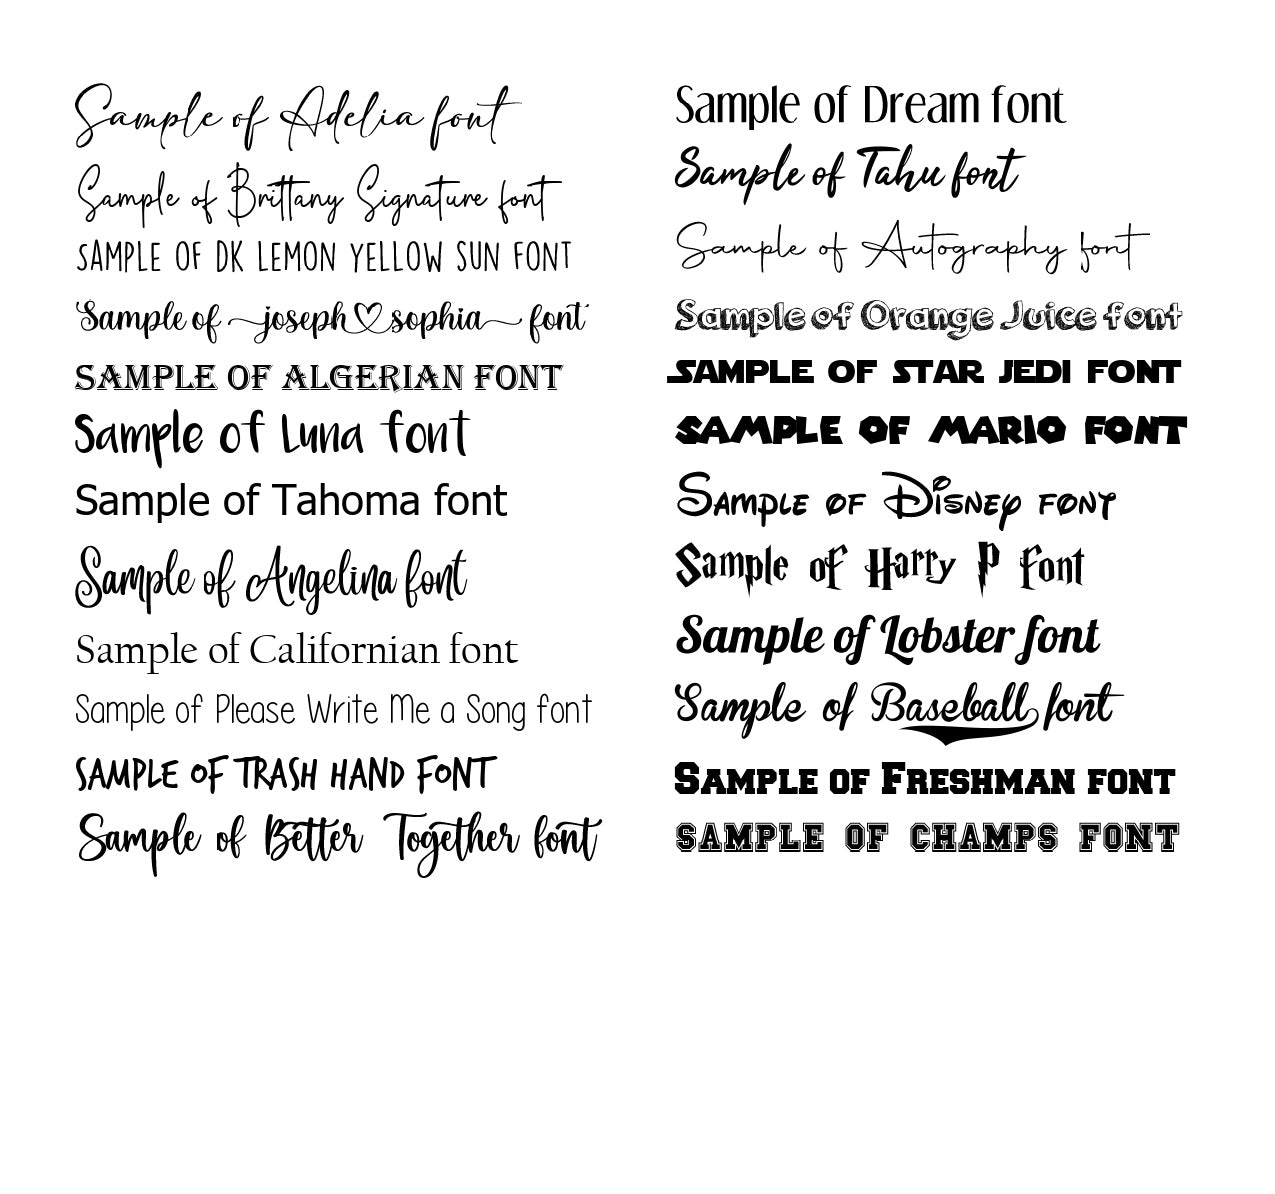 Sample of Adelia font
Sample of Brittany Signature font
SAMPLE OF DK LEMON YELLOW SUN FONT
Sample of joseph♡sophia font
SAMPLE OF ALGERIAN FONT
Sample of Luna font
Sample of Tahoma font
Sample of Angelina font
Sample of Californian font
Sample of Please Write Me a Song font
SAMPLE OF TRASH HAND FONT
Sample of Better Together font
Sample of Dream font
Sample of Tahu font
Sample of Autography font
Sample of Orange Juice font
SAMPLE OF STAR JEDI FONT
SAMPLE OF MARIO FONT
Sample of Disney font
Sample of Harry P font
Sample of Lobster font
Sample of Baseball font
Sample of Freshman font
SAMPLE OF CHAMPS FONT